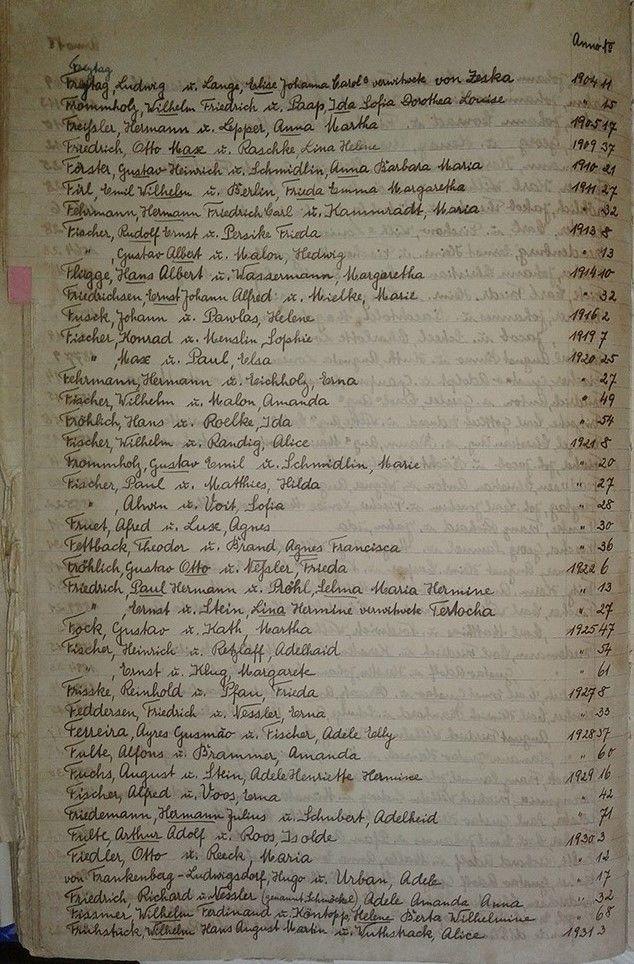 Anno №
Freytag
Freytag, Ludwig u. Lange, Elise Johanna Carol⁰ verwitwete von Zeska 1904 11
Frommholz, Wilhelm Friedrich u. Paap, Ida Sofia Dorothea Louise " 15
Freissler, Hermann u. Lepper, Anna Martha 1905 17
Friedrich, Otto Max u. Raschke Lina Helene 1909 37
Förster, Gustav Heinrich u. Schmidlin, Anna Barbara Maria 1910 21
Firl, Emil Wilhelm u. Berlin, Frieda Emma Margaretha 1911 27
Fehrmann, Hermann Friedrich Carl u. Kammradt, Maria " 32
Fischer, Rudolf Ernst u. Persike Frieda 1913 8
" Gustav Albert u. Malon, Hedwig " 13
Flegge, Hans Albert u. Wassermann, Margaretha 1914 10
Friedrichsen, Ernst Johann Alfred u. Mielke, Marie " 32
Fusck, Johann u. Pawlas, Helene 1916 2
Fischer, Konrad u. Menslin, Sophie 1919 7
" , Max u. Paul, Elsa 1920 25
Fehrmann, Hermann u. Eichholz, Erna " 27
Fischer, Wilhelm u. Malon, Amanda " 49
Fröhlich, Hans u. Roelke, Ida " 54
Fischer, Wilhelm u. Randig, Alice 1921 8
Frommholz, Gustav Emil u. Schmidlin, Marie " 20
Fischer, Paul u. Matthies, Hilda " 27
" , Alwin u. Voit, Sofia " 28
Fruet, Alfred u. Lux, Agnes " 30
Fettback, Theodor u. Brand, Agnes Francisca " 36
Fröhlich, Gustav Otto u. Nessler, Frieda 1922 6
Friedrich, Paul Hermann u. Pröhl, Selma Maria Hermine " 13
" , Ernst u. Stein, Lina Hermine verwitwete Tertocha " 27
Fock, Gustav u. Kath, Martha 1925 47
Fischer, Heinrich u. Retzlaff, Adelhaid " 54
" , Ernst u. Klug, Margarete " 61
Frisske, Reinhold u. Pfau, Frieda 1927 8
Feddersen, Friedrich u. Nessler, Erna " 33
Ferreira, Ayres Gusmão u. Fischer, Adele Elly 1928 37
Falte, Alfons u. Brammer, Amanda " 60
Fuchs, August u. Stein, Adele Henriette Hermine 1929 16
Fischer, Alfred u. Voos, Erna " 42
Friedemann, Hermann Julius u. Schubert, Adelheid " 71
Fulte, Arthur Adolf u. Roos, Isolde 1930 3
Fiedler, Otto u. Reeck, Maria " 12
von Frankenberg-Ludwigsdorf, Hugo u. Urban, Adele " 17
Friedrich, Richard u. Nessler (genannt Schmöckel) Adele Amanda Anna " 32
Fissmer, Wilhelm Ferdinand u. Köntopp, Helene Berta Wilhelmine " 68
Frühstück, Wilhelm Hans August Martin u. Wuthstrack, Alice 1931 3